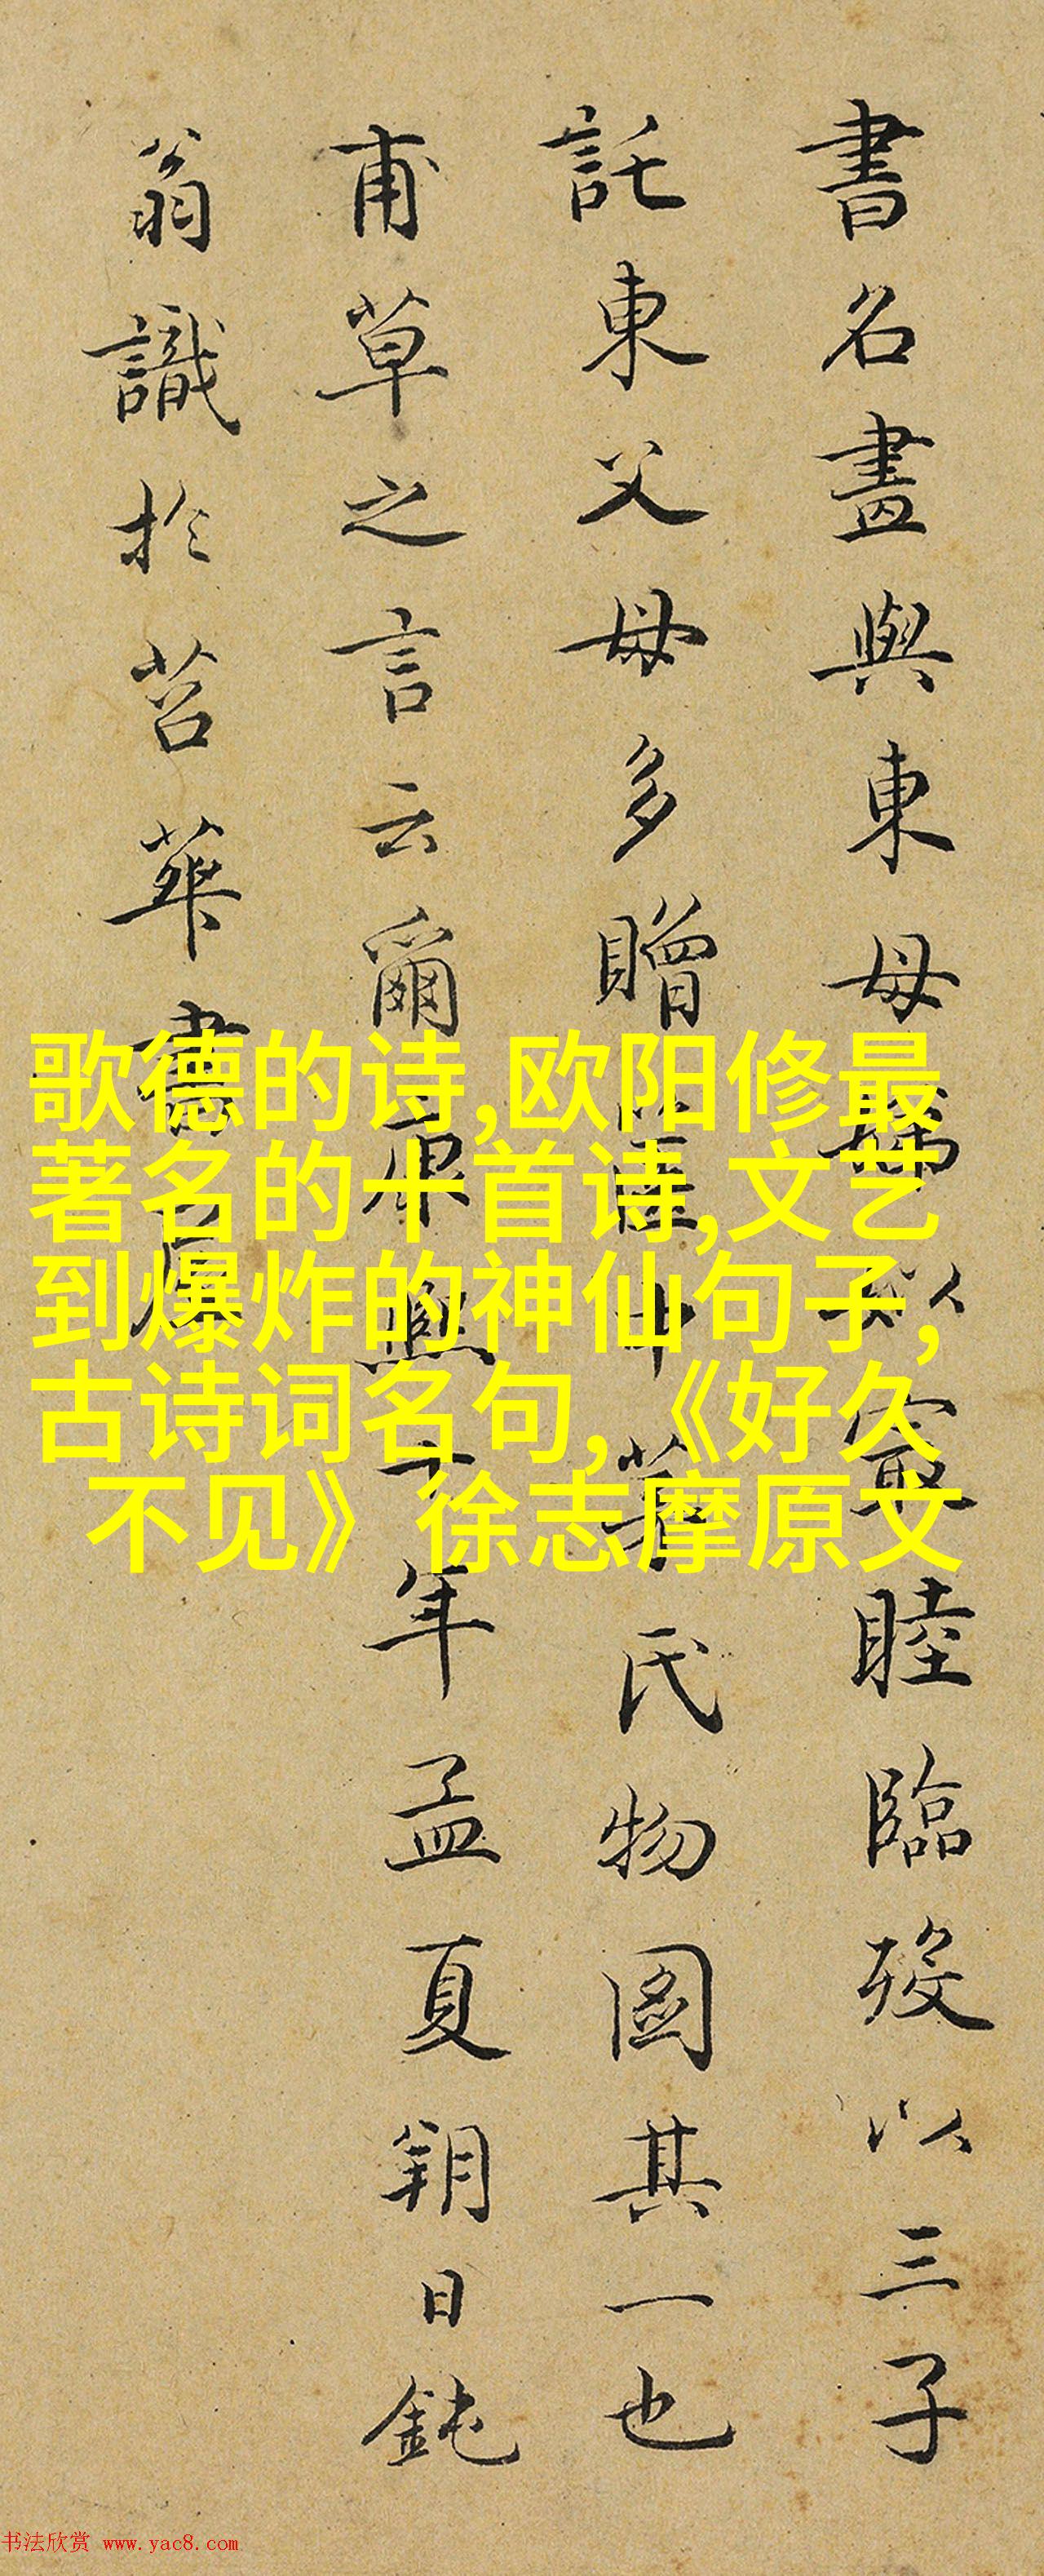 書名畫與東母 睦臨歿以三子
託東父母多贈 氏物圖其一也
甫草之言云爾 年孟夏朔日鈍
翁識於苕華書屋
歌德的诗,欧阳修最
著名的十首诗,文艺
到爆炸的神仙句子,
古诗词名句,《好久
不见》徐志摩原文
书法欣赏 www.yac8.com